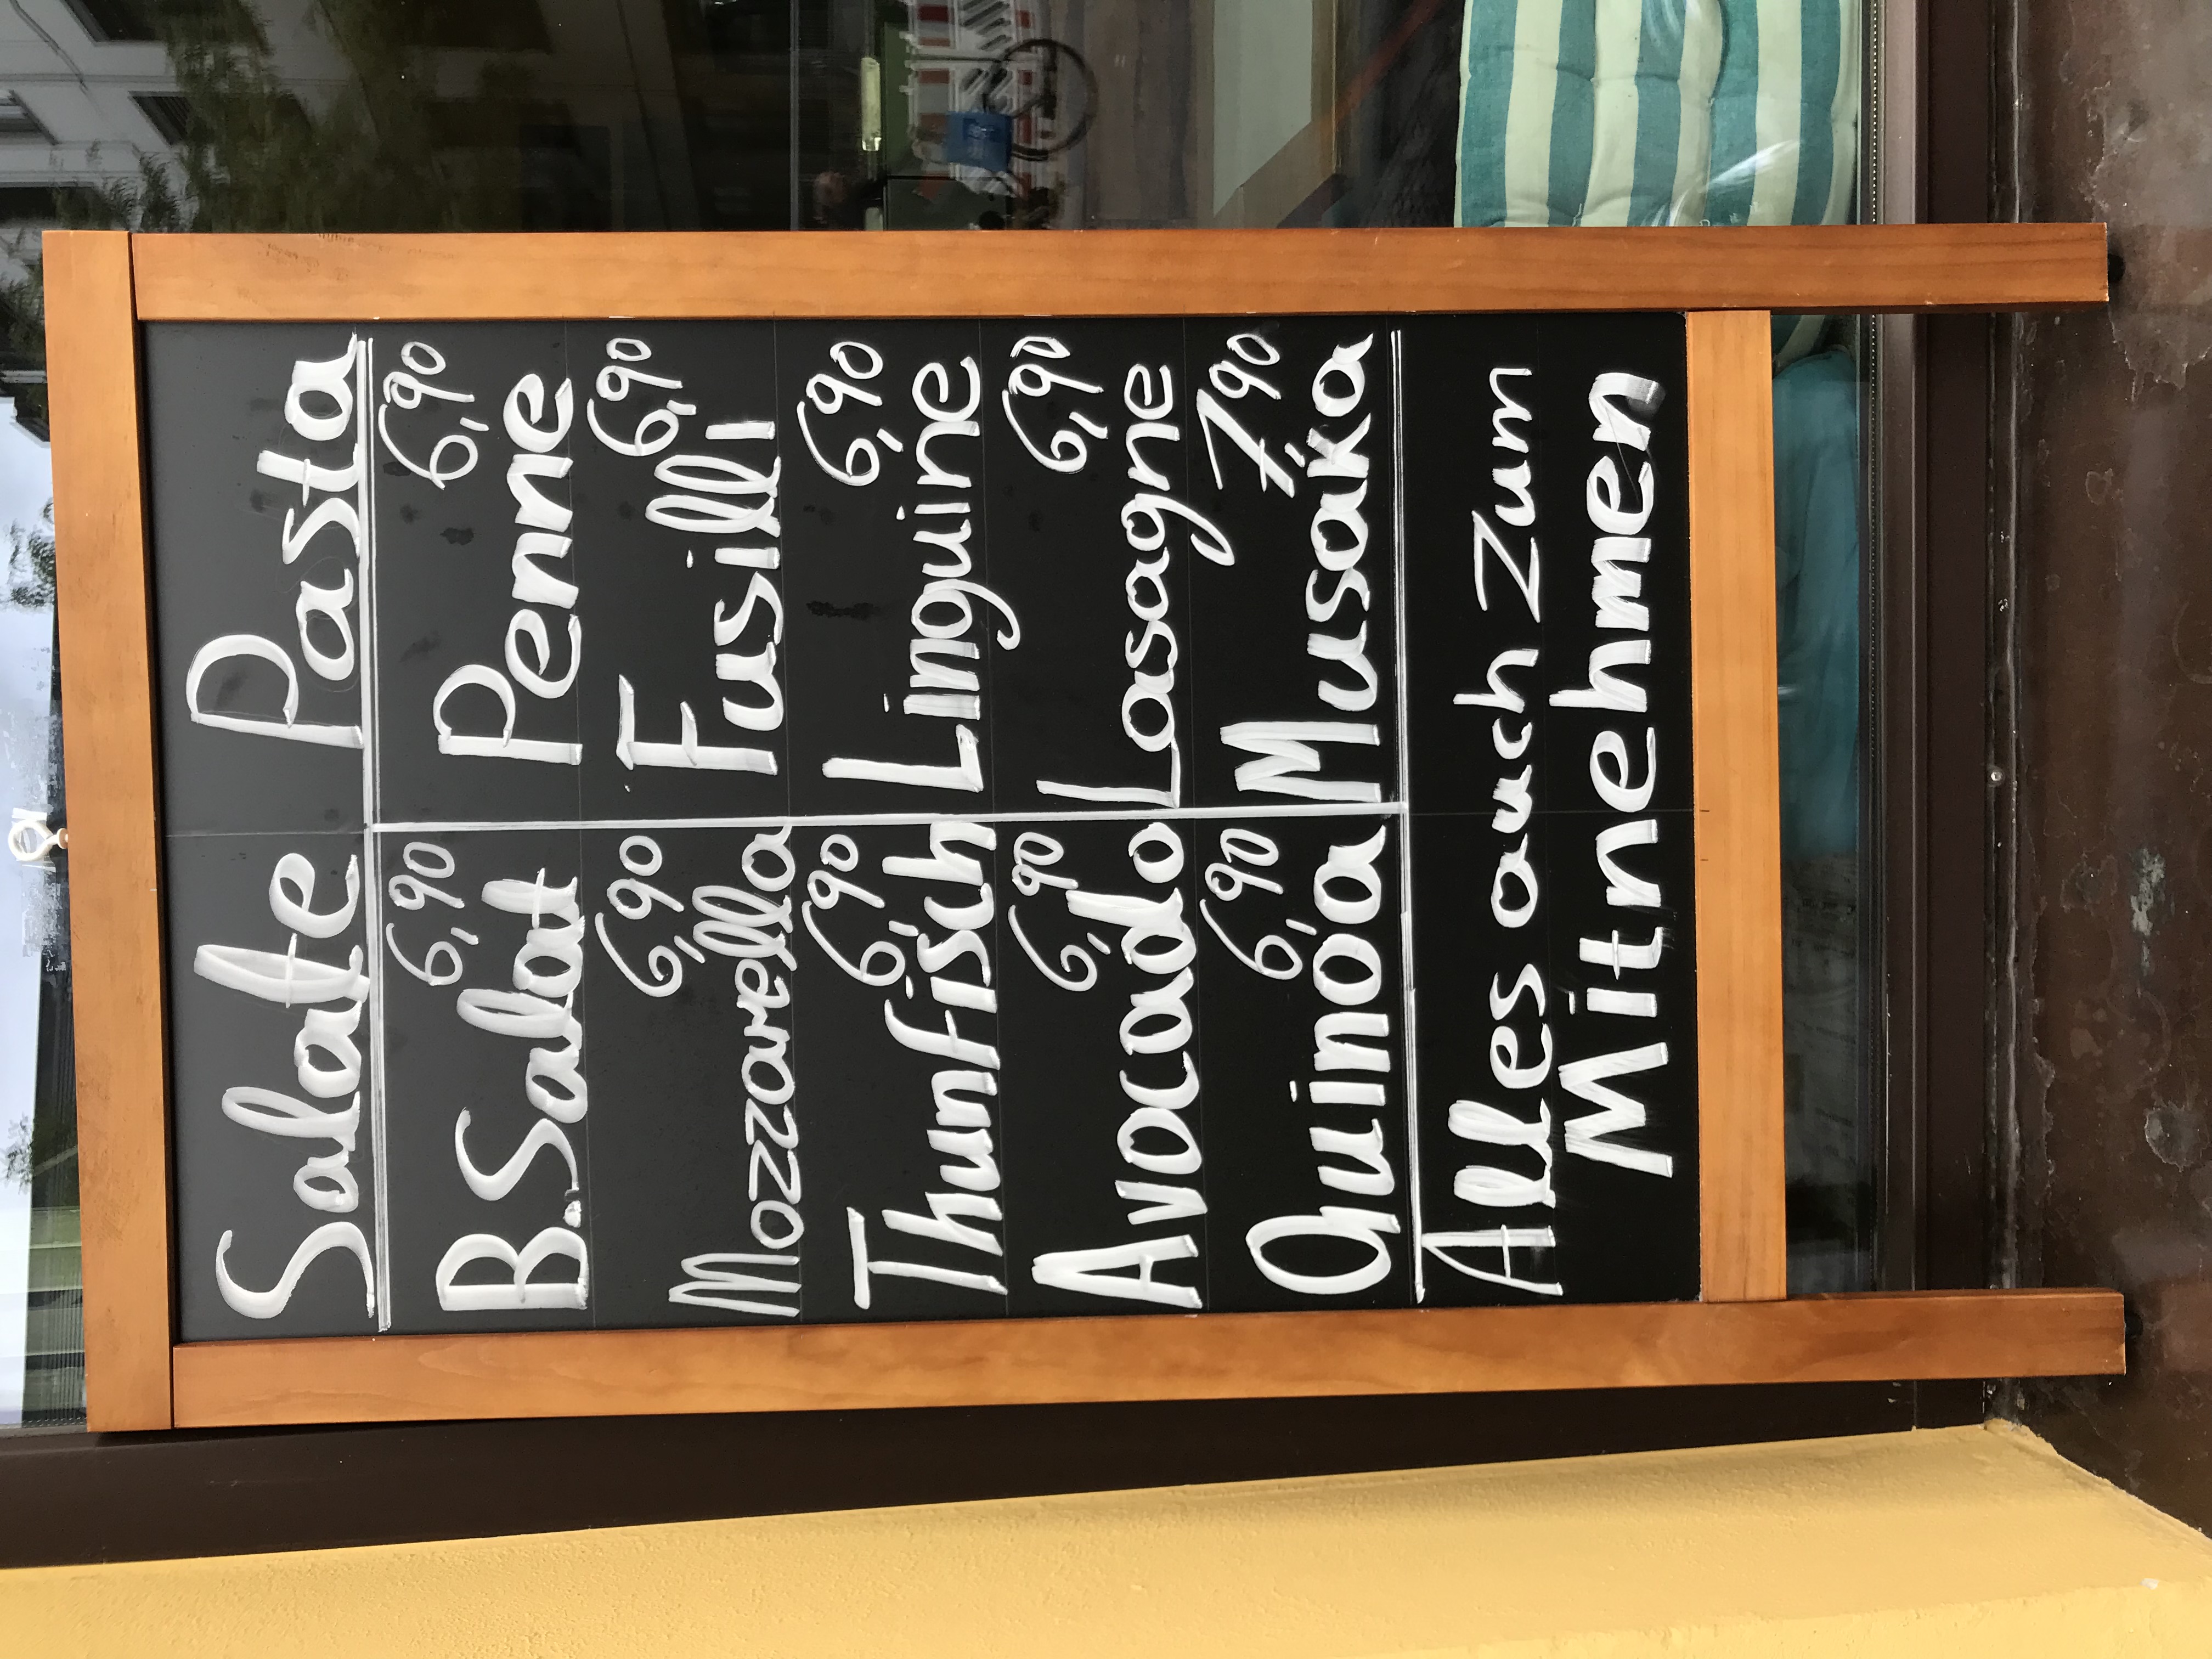 Salate Pasta
6,90 6,90
B.Salat Penne
6,90 6,90
Mozzarella Fusilli
6,90 6,90
Thunfisch Linguine
6,90 6,90
Avocado Lasagne
6,90 7,90
Quinoa Musaka
Alles auch Zum
Mitnehmen